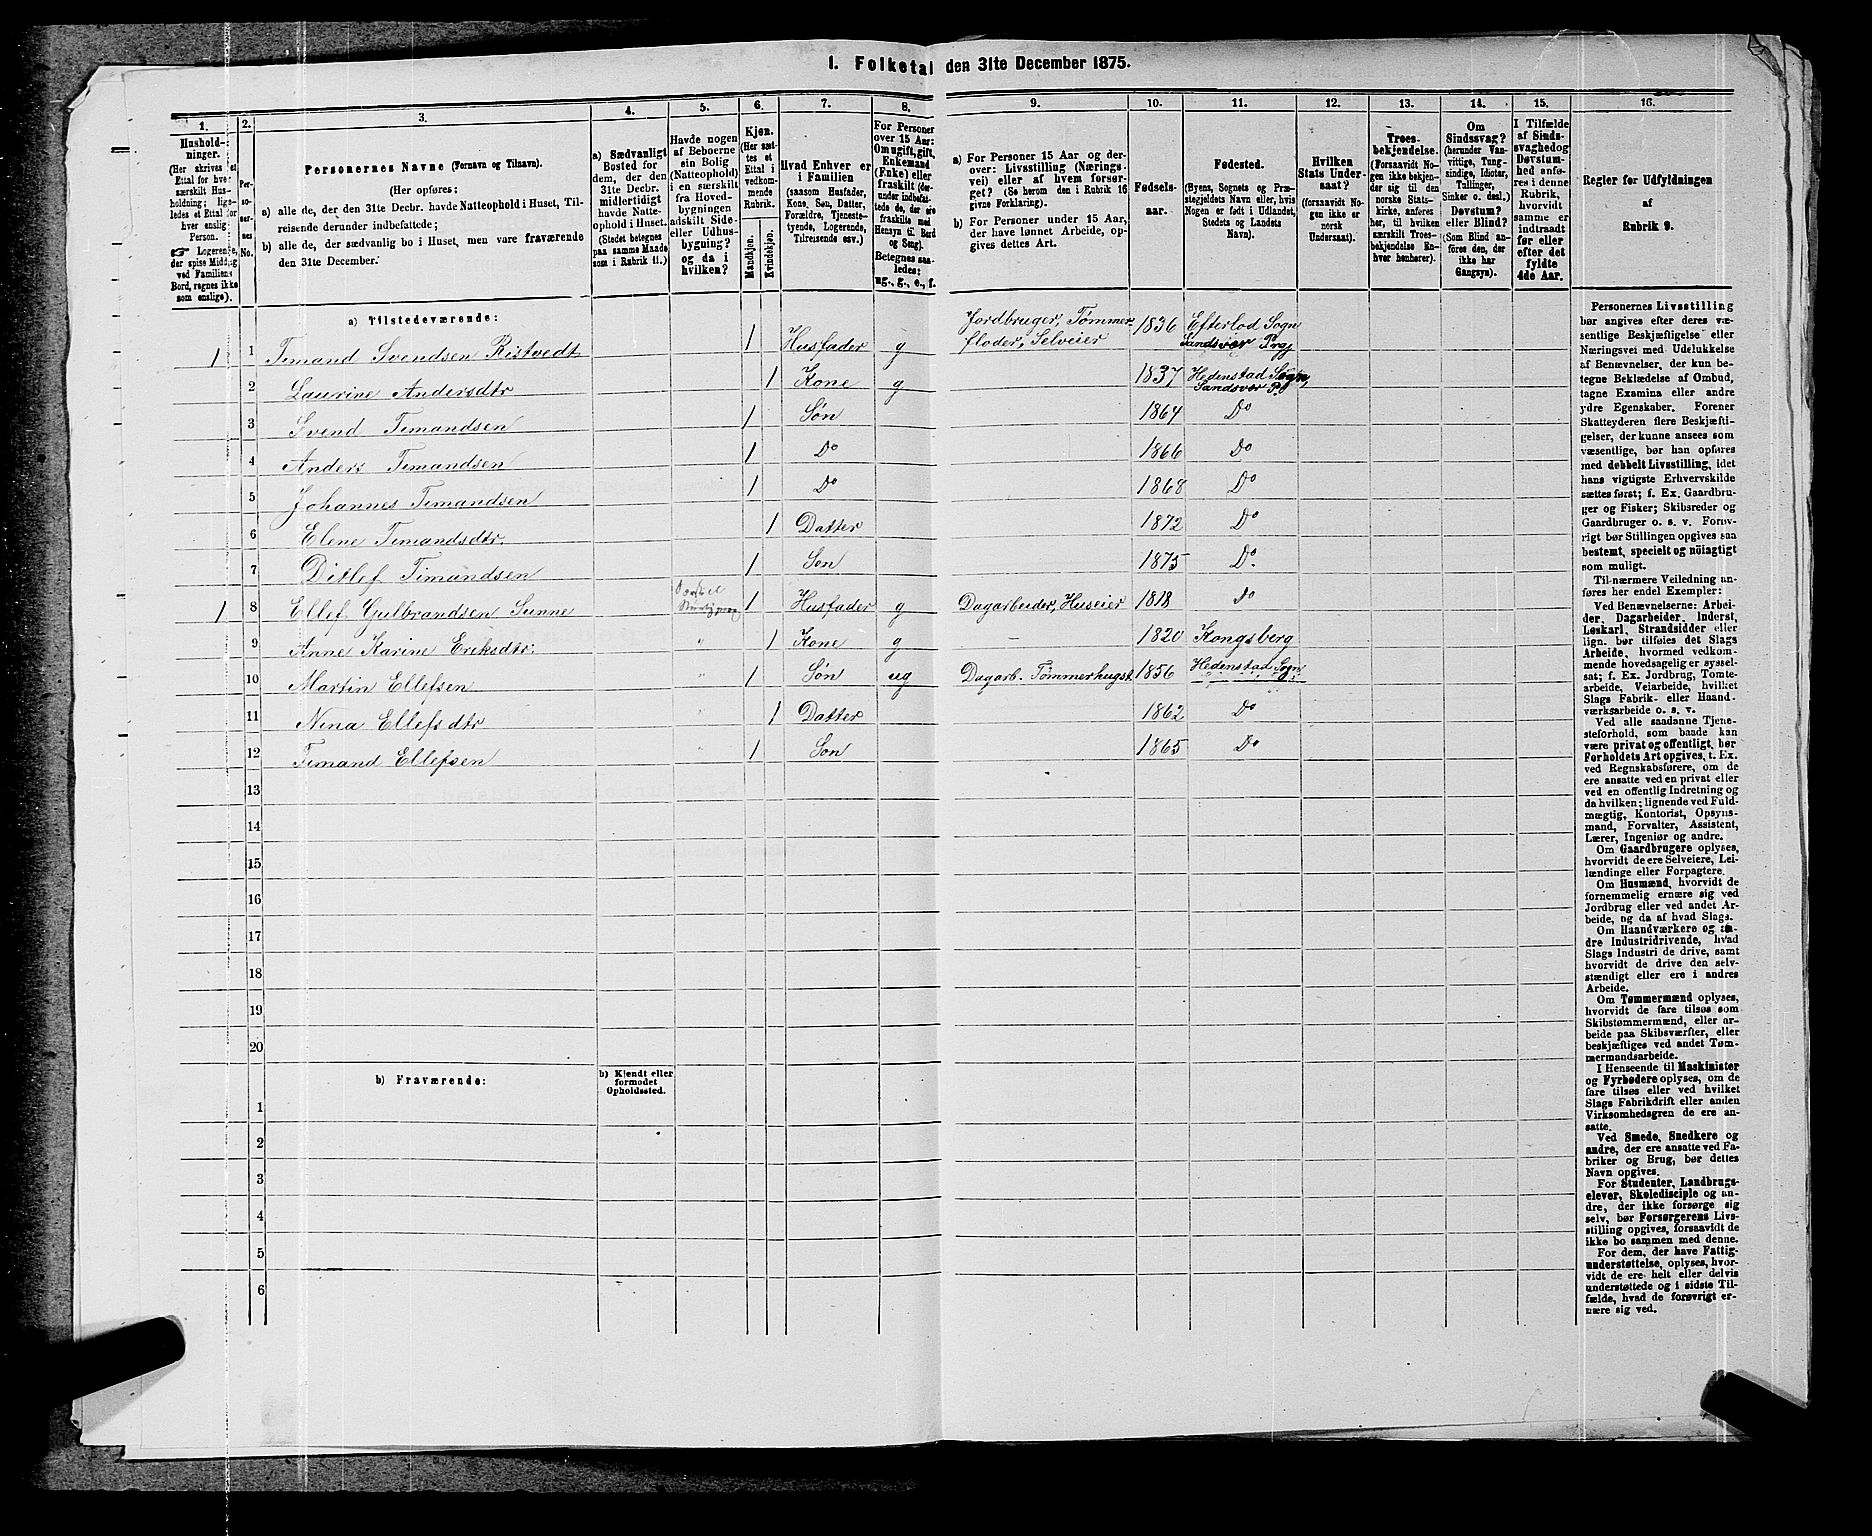 1. Folketal den 31te December 1875.
1.
Hushold-
ninger.
(Her skrives et
Ettal for hver
særskilt Hus-
holdning; lige-
ledes et Ettal for
hver enslig
Person.
☞ Logerende,
der spise Middag
ved Familiens
Bord, regnes ikke
som enslige).
2.
Per-
so-
ner-
nes
No.
3.
Personernes Navne (Fornavn og Tilnavn).
(Her opføres:
a) alle de, der den 31te Decbr. havde Natteophold i Huset, Til-
reisende derunder indbefattede;
b) alle de, der sædvanlig bo i Huset, men vare fraværende
den 31te December.
4.
a) Sædvanligt
Bosted for
dem, der den
31te Decbr.
midlertidigt
havde Natte-
ophold i Huset.
(Stedet betegnes
paa samme Maade
som i Rubrik 11.)
5.
Havde nogen
af Beboerne
sin Bolig
(Natteophold)
i en særskilt
fra Hoved-
bygningen
adskilt Side-
eller Udhus-
bygning?
og da i
hvilken?
6.
Kjøn.
(Her sæt-
tes et
Ettal i
vedkom-
mende
Rubrik.
Mandkjøn.
Kvindekjøn.
7.
Hvad Enhver er
i Familien
(saasom Husfader,
Kone, Søn, Datter,
Forældre, Tjeneste-
tyende, Logerende,
Tilreisende osv.)
8.
For Personer
over 15 Aar:
Om ugift, gift,
Enkemand
(Enke) eller
fraskilt (der-
under indbefat-
tede de, der ere
fraskilte med
Hensyn til Bord
og Seng).
Betegnes saa-
ledes:
ug., g., e., f.
9.
a) For Personer 15 Aar og der-
over: Livsstilling (Nærings-
vei) eller af hvem forsør-
get? (Se herom den i Rubrik 16
givne Forklaring).
b) For Personer under 15 Aar,
der have lønnet Arbeide, op-
gives dettes Art.
10.
Fødsels-
aar.
11.
Fødested.
(Byens, Sognets og Præ-
stegjeldets Navn eller, hvis
Nogen er født i Udlandet,
Stedets og Landets
Navn).
12.
Hvilken
Stats Under-
saat?
(forsaavidt No-
gen ikke er
norsk
Undersaat).
13.
Troes-
bekjendelse.
(Forsaavidt No-
gen ikke bekjen-
der sig til den
norske Stats-
kirke, anføres
her, til hvilken
særskilt Troes-
bekjendelse En-
hver henhører).
14.
Om
Sindssvag?
(herunder Van-
vittige, Tung-
sindige, Idioter,
Tullinger,
Sinker o. desl.)
Døvstum?
eller Blind?
(Som Blind an-
føres den, der
ikke har
Gangsyn).
15.
I Tilfælde
af Sinds-
svaghed og
Døvstum-
hed anfø-
res i denne
Rubrik,
hvorvidt
samme er
indtraadt
før eller
efter det
fyldte
4de Aar.
16.
Regler for Udfyldningen
af
Rubrik 9.
a) Tilstedeværende:
1 1 Timand Svendsen Ristvedt 1 Husfader g Jordbruger, Tømmer- floder, Selveier 1836 Efterlod Sogn Sandsvær Prgj
2 Laurine Andersdtr 1 Kone g 1837 Hedenstad Sogn, Sandsvær Pgj
3 Svend Timandsen 1 Søn 1864 Do
4 Anders Timandsen 1 Do 1866 Do
5 Johannes Timandsen 1 Do 1868 Do
6 Elene Timandsdtr. 1 Datter 1872 Do
7 Ditlef Timandsen 1 Søn 1875 Do.
1 8 Ellef Gulbrandsen Sunne 1 Husfader g Dagarbeider, Huseier 1818 do
9 Anne Karine Eriksdtr. " 1 Kone g — 1820 Kongsberg
10 Martin Ellefsen " 1 Søn ug Dagarb. Tømmerhugst. 1856 Hedenstad Sogn
11 Nina Ellefsdtr " 1 Datter 1862 Do
12 Timand Ellefsen " 1 Søn 1865 Do
13
14
15
16
17
18
19
20
b) Fraværende:
b) Kjendt eller
formodet
Opholdssted.
1
2
3
4
5
6
Personernes Livsstilling
bør angives efter deres væ-
sentlige Beskjæftigelse eller
Næringsvei med Udelukkelse
af Benævnelser, der kun be-
tegne Beklædelse af Ombud,
tagne Examina eller andre
ydre Egenskaber. Forener
Skatteyderen flere Beskjæfti-
gelser, der kunne ansees som
væsentlige, bør han opføres
med dobbelt Livsstilling, idet
hans vigtigste Erhvervskilde
sættes først; f. Ex. Gaardbru-
ger og Fisker; Skibsreder og
Gaardbruger o. s. v. Forøv-
rigt bør Stillingen opgives saa
bestemt, specielt og nöiagtigt
som muligt.
Til nærmere Veiledning an-
føres her endel Exempler:
Ved Benævnelserne: Arbei-
der, Dagarbeider, Inderst,
Løskarl, Strandsidder eller
lign. bør tilføies det Slags
Arbeide, hvormed vedkom-
mende hovedsagelig er syssel-
sat; f. Ex. Jordbrug, Tomte-
arbeide, Veiarbeide, hvilket
Slags Fabrik- eller Haand-
værksarbeide o. s. v.
Ved alle saadanne Tjene-
steforhold, som baade kan
være privat og offentligt, bør
Forholdets Art opgives, t. Ex.
ved Regnskabsførere, om de
ere ansatte ved en privat eller
ved en offentlig Indretning og
da hvilken; lignende ved Fuld-
mægtig, Kontorist, Opsyns-
mand, Forvalter, Assistent,
Lærer, Ingeniør og andre.
Om Gaardbrugere oplyses,
hvorvidt de ere Selveiere, Lei-
lændinge eller Forpagtere.
Om Husmænd, hvorvidt de
fornemmelig ernære sig ved
Jordbrug eller ved andet Ar-
beide, og da af hvad Slags.
Om Haandværkere og an-
dre Industridrivende, hvad
Slags Industri de drive, samt
hvorvidt de drive den selv-
stændigt eller ere i andres
Arbeide.
Om Tømmermænd oplyses,
hvorvidt de fare tilsøs som
Skibstømmermænd, eller ar-
beide paa Skibsværfter, eller
beskjæftiges ved andet Tøm-
mermandsarbeide.
I Henseende til Maskinister
og Fyrbødere oplyses, om de
fare tilsøs eller ved hvilket
Slags Fabrikdrift eller anden
Virksomhedsgren de ere an-
satte.
Ved Smede, Snedkere og
andre, der ere ansatte ved Fa-
briker og Brug, bør dettes
Navn opgives.
For Studenter, Landbrugs-
elever, Skoledisciple og an-
dre, der ikke forsørge sig
selv, bør Forsørgerens Livs-
stilling opgives, forsaavidt de
ikke bo sammen med denne.
For dem, der have Fattig-
understøttelse, oplyses, hvor-
vidt de ere helt eller delvis
understøttede og i sidste Til-
fælde, hvad de forøvrigt er-
nære sig ved.